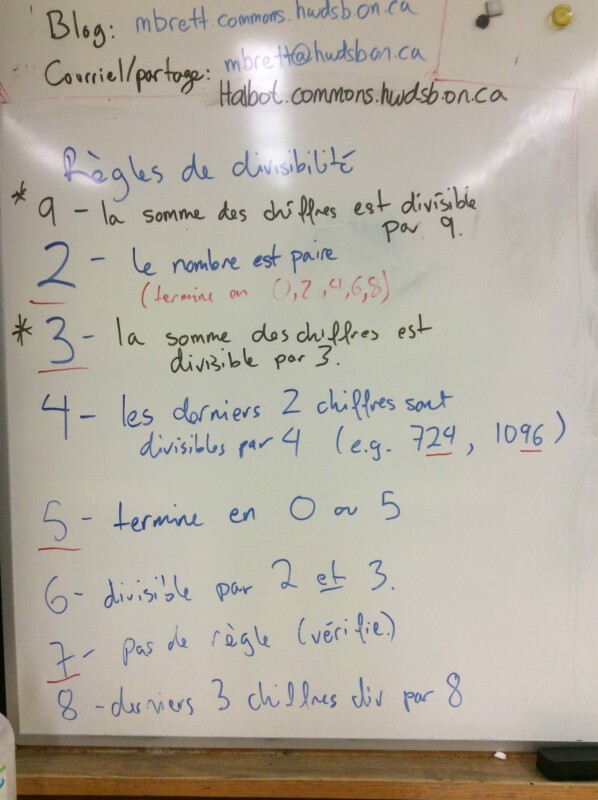 Blog: mbrett.commons.hwdsb.on.ca
Courriel/partage: mbrett@hwdsb.on.ca
Halbot.commons.hwdsb.on.ca
Règles de divisibilité
* 9 - la somme des chiffres est divisible
par 9.
2 - le nombre est paire
(termine en 0,2,4,6,8)
* 3 - la somme des chiffres est
divisible par 3.
4 - les derniers 2 chiffres sont
divisibles par 4 (e.g. 724, 1096)
5 - termine en 0 ou 5
6 - divisible par 2 et 3.
7 - pas de règle (vérifie.)
8 - derniers 3 chiffres div par 8